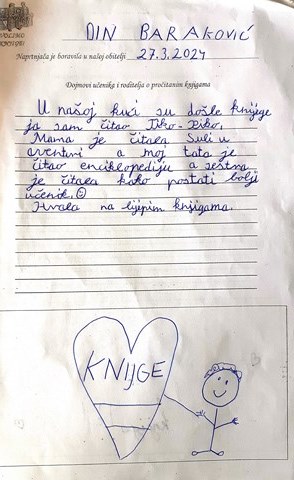 VOLIMO
KNJIGE
DIN BARAKOVIĆ
Naprtnjača je boravila u našoj obitelji 27.3.2024
Dojmovi učenika i roditelja o pročitanim knjigama
U našoj kući su došle knijege
ja sam čitao Tiko-Piko,
Mama je čitala Suli u
aventini a moj tata je
čitao enciklopediju a sestra
je čitala kako postati bolji
učenik.☺
Hvala na lijepim knjigama.
KNIJGE